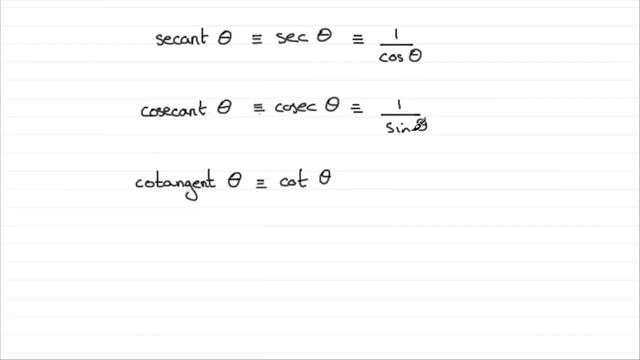 secant θ ≡ sec θ ≡ 1/cos θ
cosecant θ ≡ cosec θ ≡ 1/sin θ
cotangent θ ≡ cot θ